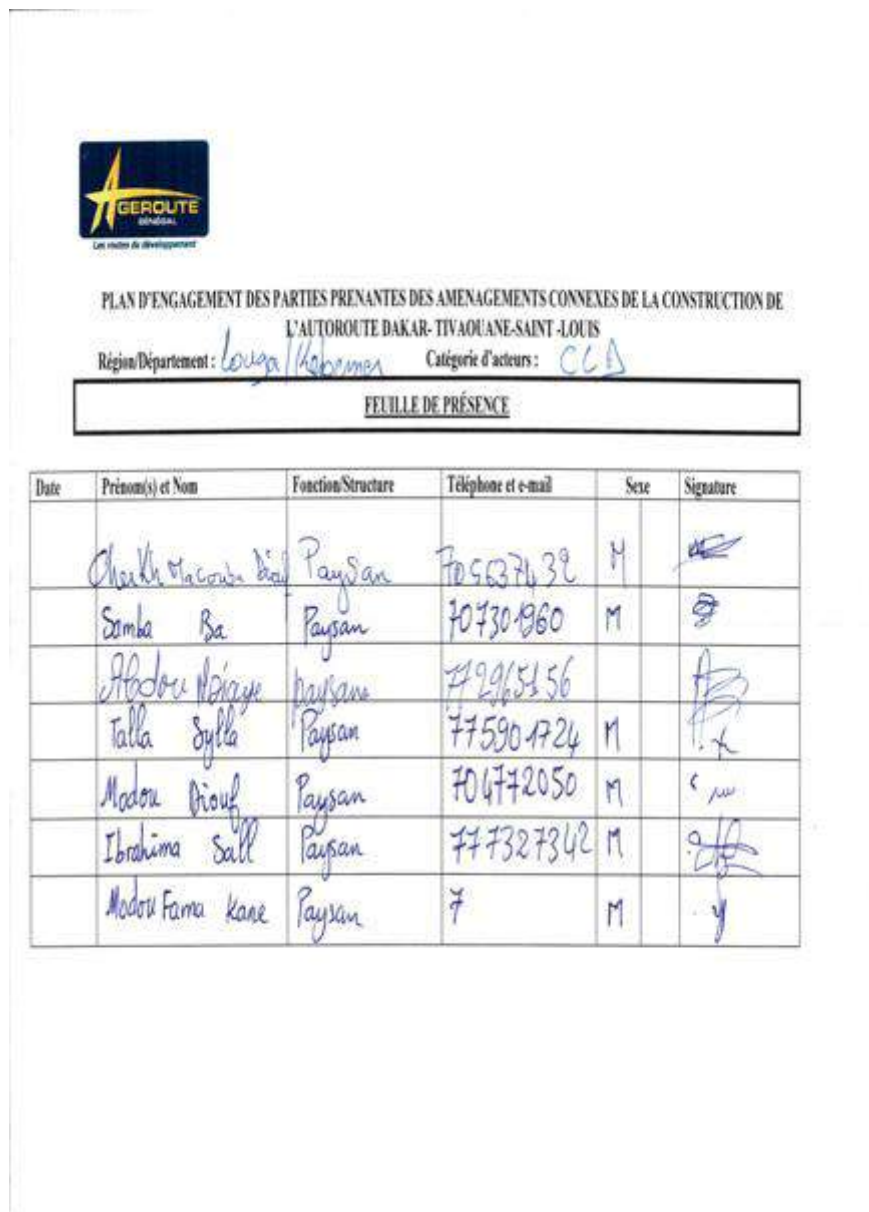 AGEROUTE
SÉNÉGAL
Les routes du développement
PLAN D'ENGAGEMENT DES PARTIES PRENANTES DES AMENAGEMENTS CONNEXES DE LA CONSTRUCTION DE
L'AUTOROUTE DAKAR- TIVAOUANE-SAINT -LOUIS
Région/Département : Louga/Kebemer Catégorie d'acteurs : CLD
FEUILLE DE PRÉSENCE
Date Prénom(s) et Nom Fonction/Structure Téléphone et e-mail Sexe Signature
Cheikh Macoumba Paysan 705637432 M
Samba Ba Paysan 707301960 M
Abdou Ndiaye paysane 772965156
Talla Sylla Paysan 775901724 M
Modou Diouf Paysan 704772050 M
Ibrahima Sall Paysan 777327342 M
Modou Fama Kane Paysan 7 M